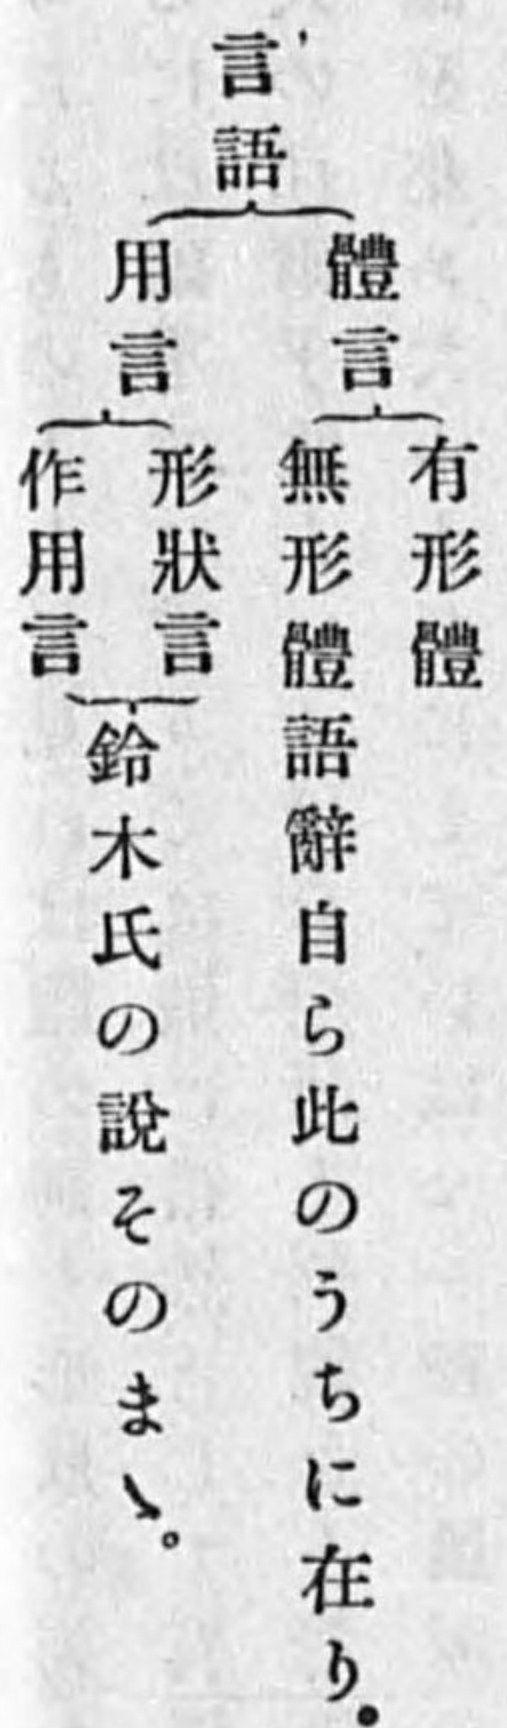 言語
體言
有形體
無形體語辭自ら此のうちに在り。
用言
形狀言
作用言
鈴木氏の說そのまゝ。